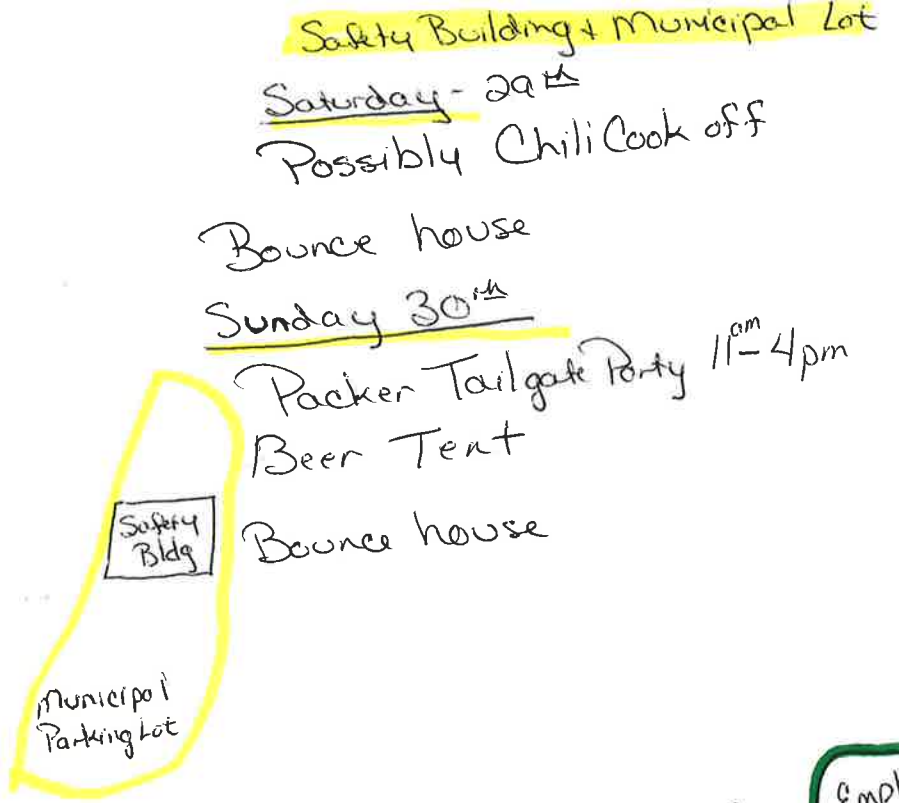 Safety Building + Municipal Lot
Saturday - 29th
Possibly Chili Cook off
Bounce house
Sunday 30th
Packer Tailgate Party 11am - 4pm
Beer Tent
Bounce house
Safety
Bldg
Municipal
Parking Lot